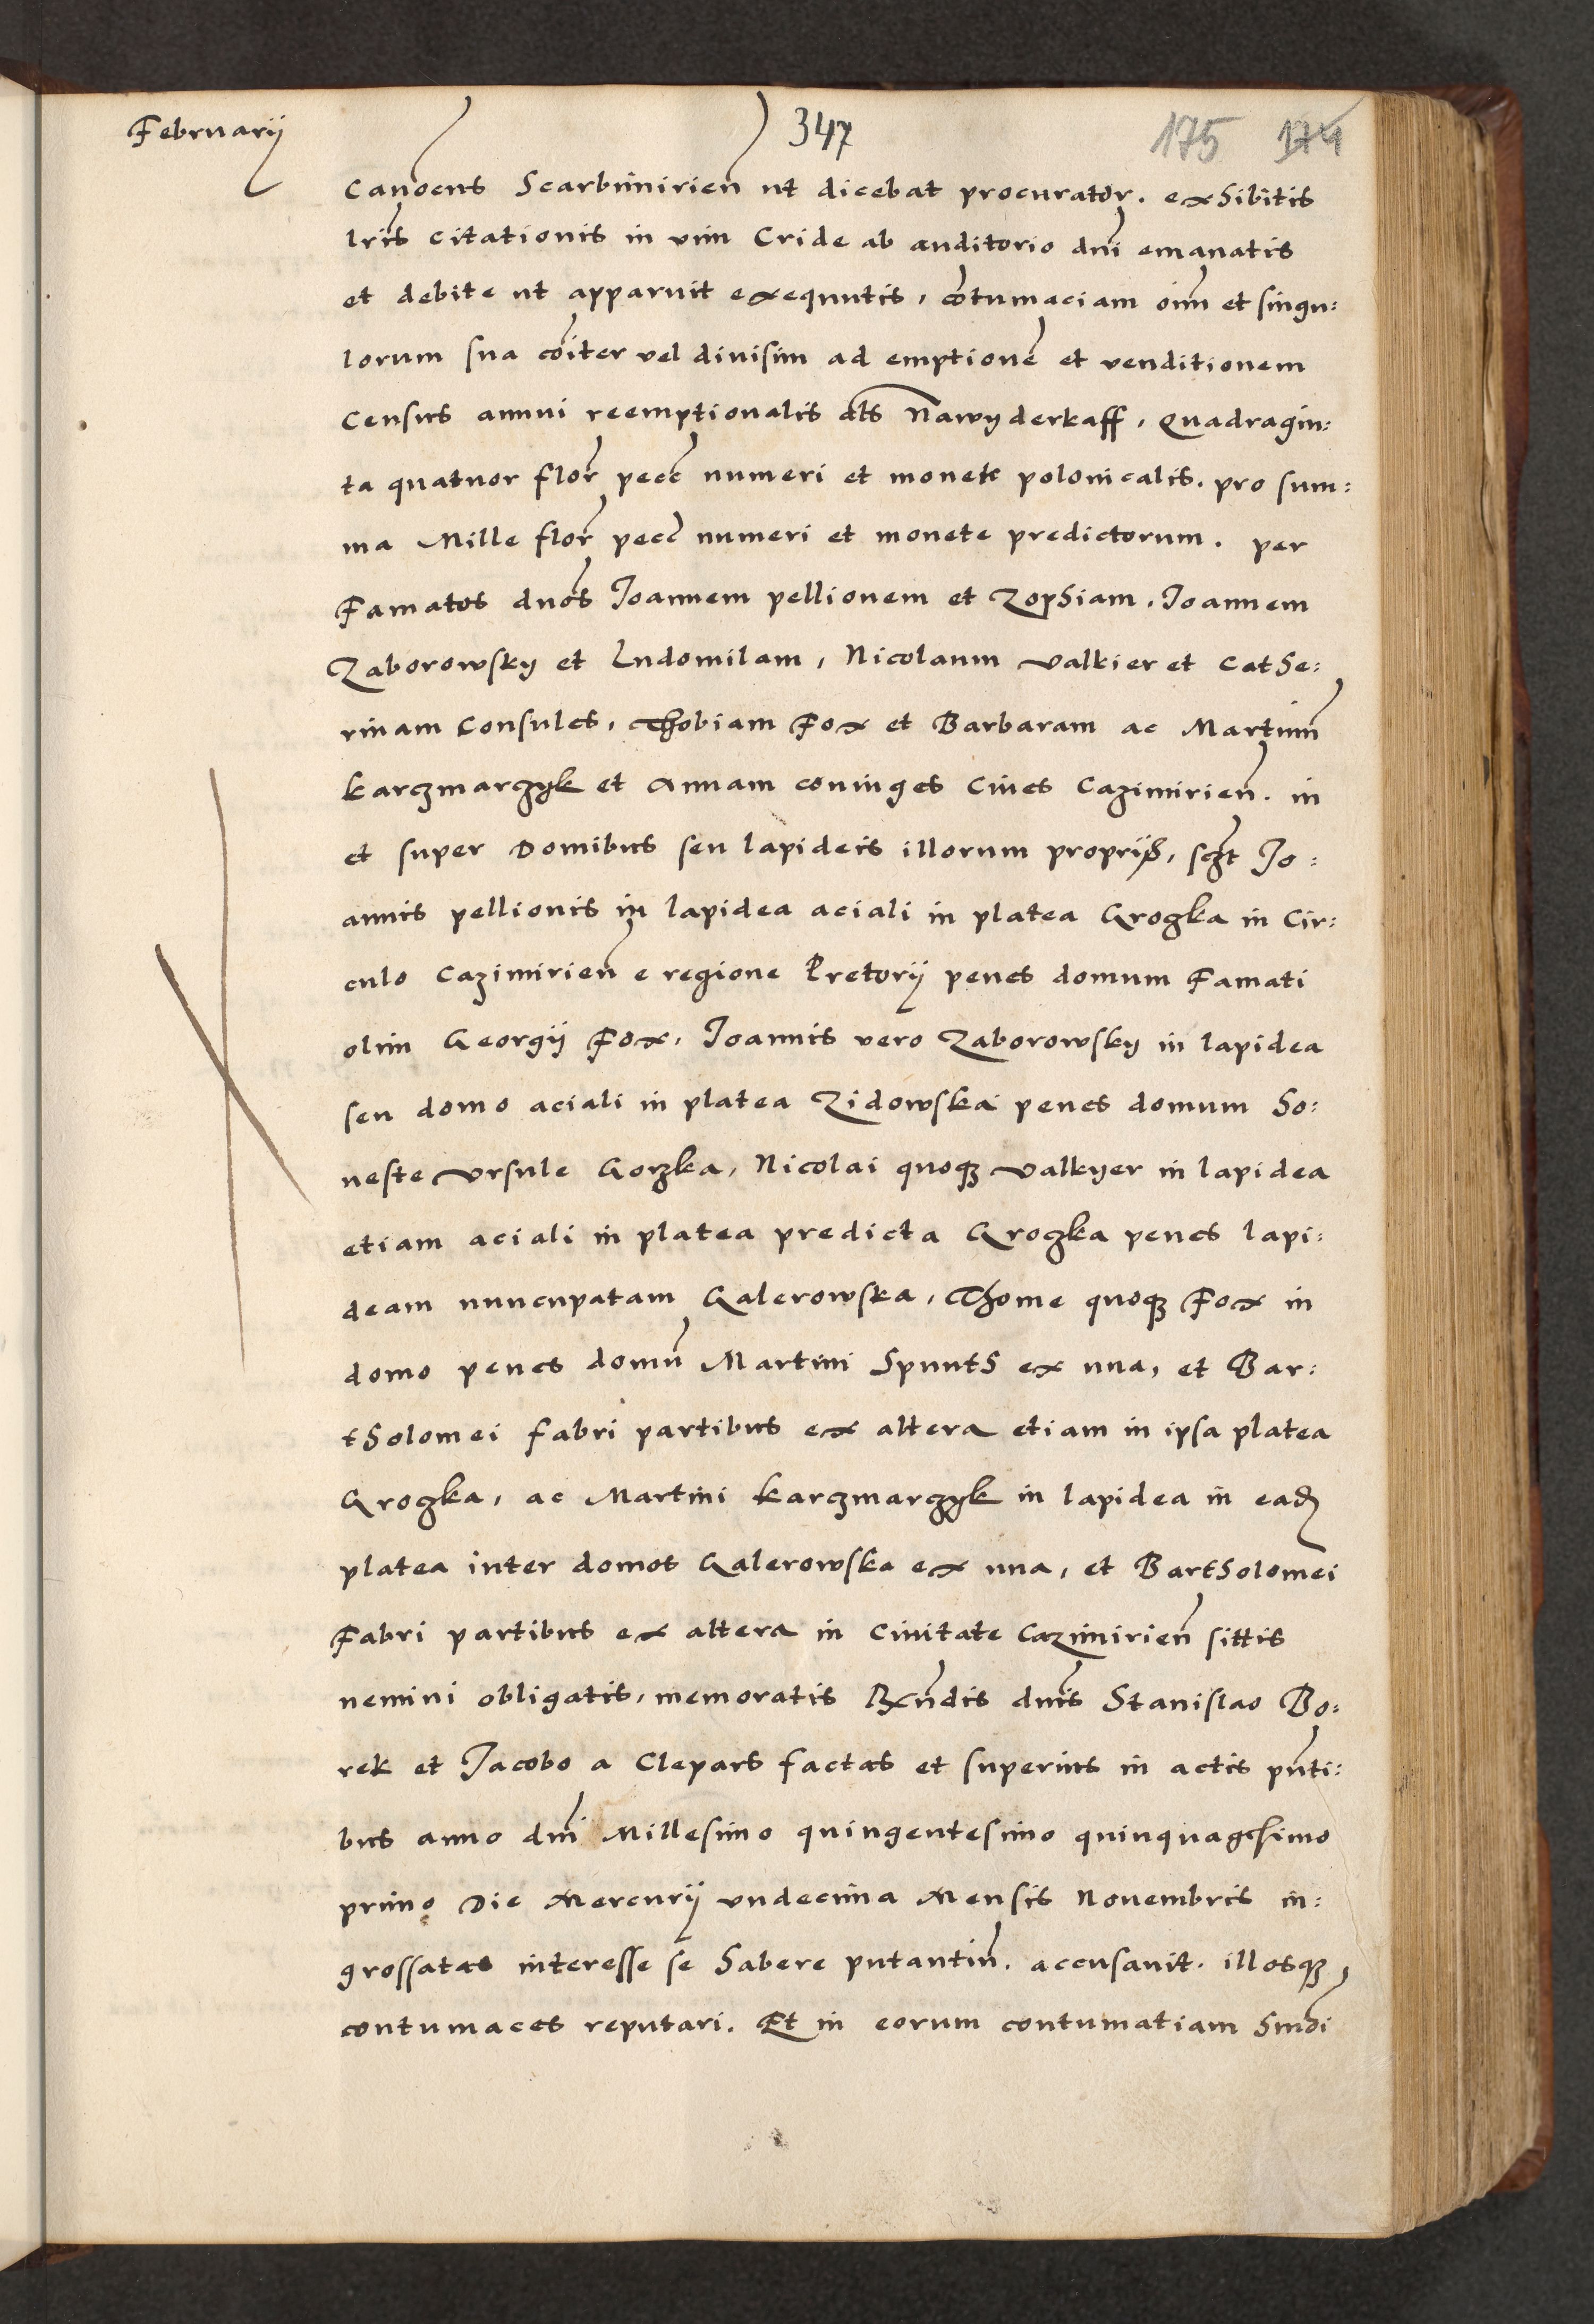 Februarij
347
175 174
Canocus Scarbimirien̄ ut dicebat procurator. exhibitis
lr̄is citationis in vim Cride ab auditorio dn̄i emanatis
et debite ut apparuit exequutis, cōtumaciam oīm et singu:
lorum sua cōiter vel diuisim ad emptionē et venditionem
Census annui reemptionalis als Nawyderkaff, Quadragin:
ta quatuor flor̄ pecc̄ numeri et monete polonicalis. pro sum:
ma Mille flor̄ pecc̄ numeri et monete predictorum. per
Famatos dnōs Joannem pellionem et Zophiam. Joannem
Zaborowsky et Ludomilam, Nicolaum Valkier et Cathe:
rinam Consules, Thobiam Fox et Barbaram ac Martinū
karczmarczyk et Annam coniuges Ciues Cazimirien̄. in
et super Domibus seu lapideis illorum proprijs, sczt Jo:
annis pellionis in lapidea aciali in platea Groczka in Cir:
culo Cazimirien̄ e regione Pretorij penes domum Famati
olim Georgij Fox, Joannis vero Zaborowsky in lapidea
seu domo aciali in platea Zidowska penes domum ho:
neste Vrsule Gorzka, Nicolai quoqz Valkyer in lapidea
etiam aciali in platea predicta Groczka penes lapi:
deam nuncupatam Galerowska, Thome quoqz Fox in
domo penes domū Martini Spunth ex una, et Bar:
tholomei fabri partibus ex altera etiam in ipsa platea
Groczka, ac Martini karczmarczyk in lapidea in eadz
platea inter domos Galerowska ex una, et Bartholomei
Fabri partibus ex altera in Ciuitate Cazimirien̄ sittis
nemini obligatis, memoratis Rn̄dis dn̄is Stanislao Bo:
rek et Jacobo a Clepars factas et superius in actis pn̄ti:
bus anno dn̄i Millesimo quingentesimo quinquagesimo
primo Die Mercurij undecima Mensis Nouembris in:
grossatas interesse se habere putantiū. accusauit. illosqz
contumaces reputari. Et in eorum contumatiam hmōi